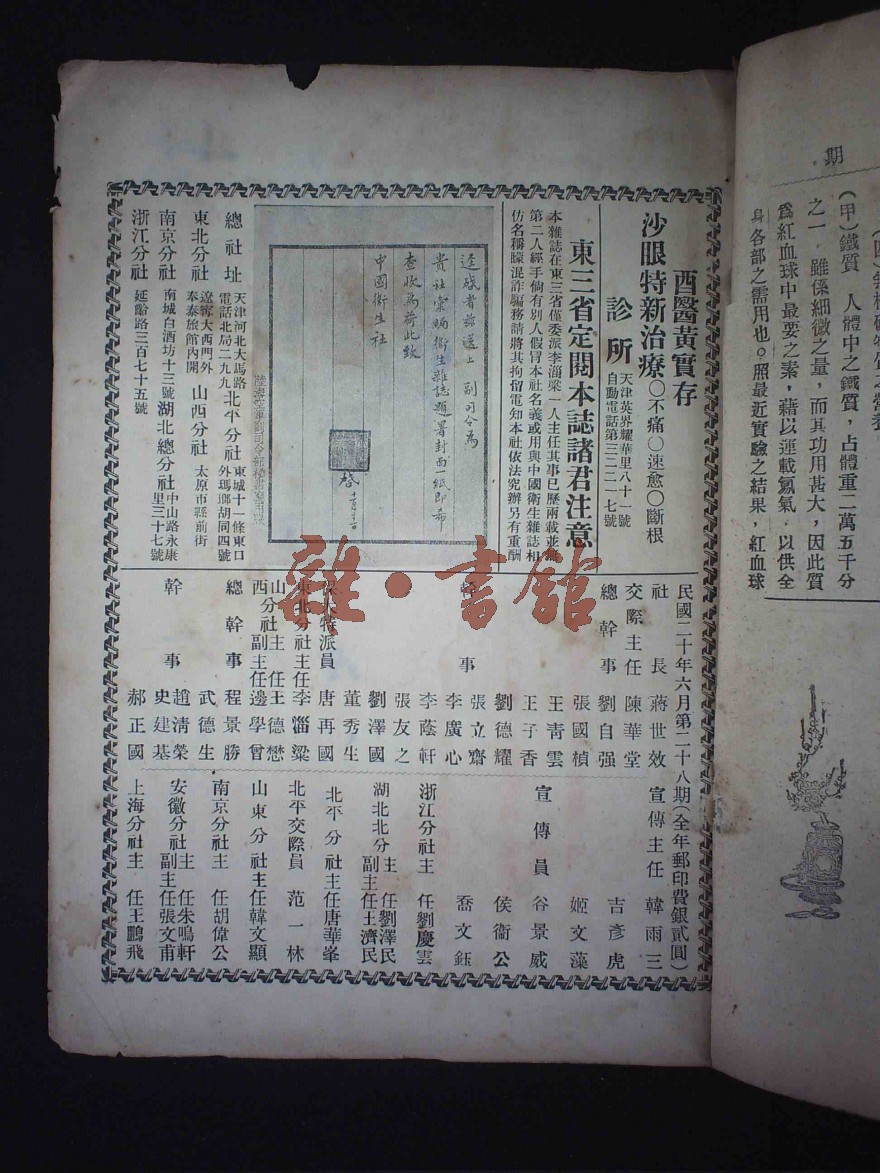 期
(甲)鐵質　人體中之鐵質，占體重二萬五千分
之一．雖係細微之量，而其功用甚大，因此質
爲紅血球中最要之素，藉以運載氣．以供全
身各部之需用也。照最近實驗之結果，紅血球
西醫黃實存
沙眼特新治療○不痛○速愈○斷根
診所
天津英界耀華里八十一號
自動電話第三二二一七號
東三省定閱本誌諸君注意
本雜誌在東三省僅委派李淄梁一人主任其事已歷兩載並無
第二人經手倘有別人假冒本社名義或用與中國衛生雜誌相
仿名稱朦混詐騙務請將其拘留電知本社依法究辦另有重酬
逕啟者茲送上　副司令爲
貴社彙編衛生雜誌題署封面一紙即希
查收爲荷此致
中國衛生社
啓
總社址
天津河北大馬路
電話北局二九九
北平分社
東城十一條東口
外瑪瑯胡同四號
東北分社
遼寧大西門外
奉泰旅館內開
山西分社　太原市縣前街
南京分社　南城白酒坊十三號
湖北總分社
中山路永康
里三十七號
浙江分社　延齡路三百七十五號
民國二十年六月第二十八期(全年郵印費銀貳圓)
社長　蔣世效
交際主任　陳華堂
總幹事　劉自强
張國楨
王靑雲
王子香
劉德耀
幹事　張立齋
李廣心
李蔭軒
張友之
劉澤國
董秀生
特派員　唐再國
東北分社主任　李淄梁
山西分社主任　王德懋
副主任　邊學曾
總幹事　程景勝
武德生
幹事　趙淸榮
史建基
郝正國
宣傳主任　韓雨三
吉彥虎
姬文藻
宣傳員　谷景威
侯衞公
喬文鈺
浙江分社主任　劉慶雲
湖北北分主任　劉澤民
副主任　王濟民
北平分社主任　唐華峯
北平交際員　范一林
山東分社主任　韓文顯
南京分社主任　胡偉公
安徽分社主任　朱鳴軒
副主任　張文甫
上海分社主任　王鵬飛
雜·書舘